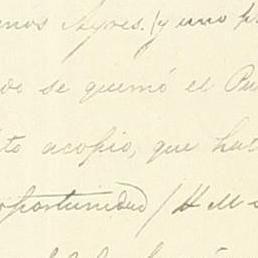 nos Ayres. (y uno p
se quemó el Pu
to acopio, que ha
oportunidad /